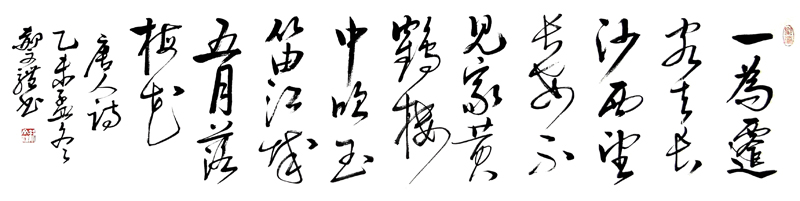 一為遷
客去長
沙西望
長安不
見家黄
鶴樓
中吹玉
笛江城
五月落
梅花
唐人詩
乙未孟冬
書